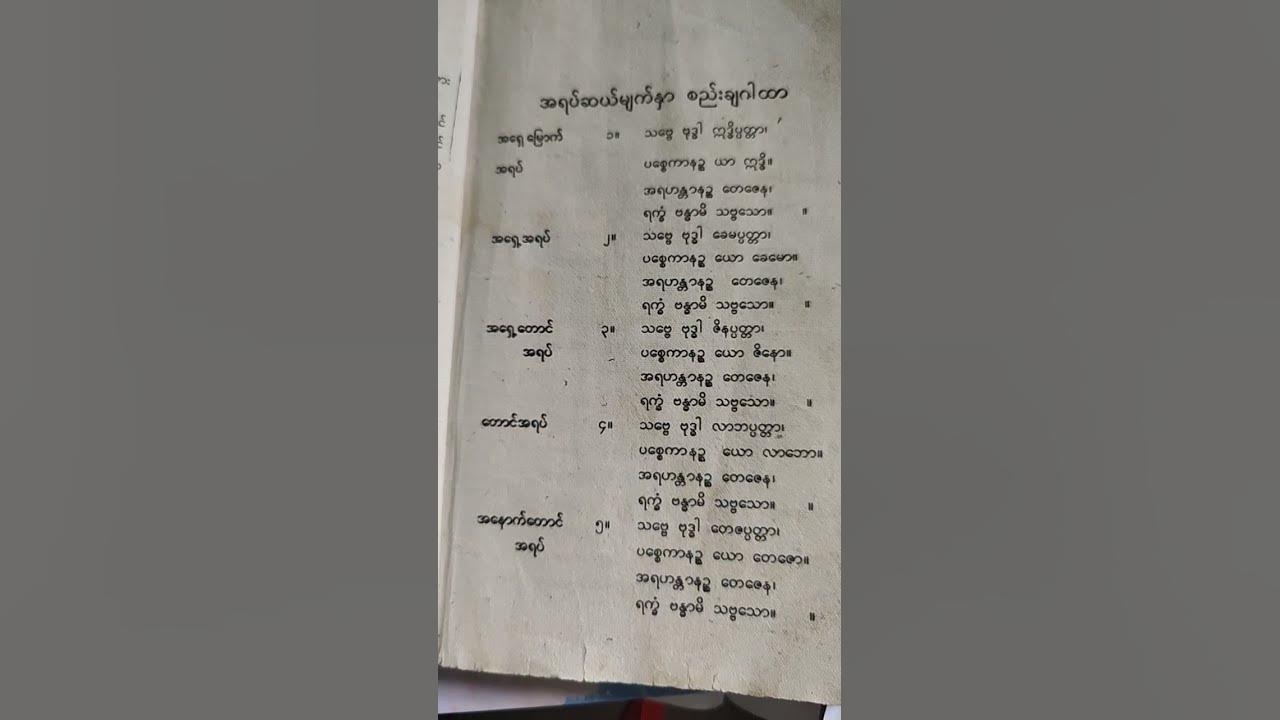 အရပ်ဆယ်မျက်နှာ စည်းချဂါထာ
အရှေ့မြောက် ၁။ သဗ္ဗေ ဗုဒ္ဓါ ဣဒ္ဓိပ္ပတ္တာ၊
အရပ် ပစ္စေကာနဉ္စ ယာ ဣဒ္ဓိ။
အရဟန္တာနဉ္စ တေဇေန၊
ရက္ခံ ဗန္ဓာမိ သဗ္ဗသော။ ။
အရှေ့အရပ် ၂။ သဗ္ဗေ ဗုဒ္ဓါ ခေမပ္ပတ္တာ၊
ပစ္စေကာနဉ္စ ယော ခေမော။
အရဟန္တာနဉ္စ တေဇေန၊
ရက္ခံ ဗန္ဓာမိ သဗ္ဗသော။ ။
အရှေ့တောင် ၃။ သဗ္ဗေ ဗုဒ္ဓါ ဇိနပ္ပတ္တာ၊
အရပ် ပစ္စေကာနဉ္စ ယော ဇိနော။
အရဟန္တာနဉ္စ တေဇေန၊
ရက္ခံ ဗန္ဓာမိ သဗ္ဗသော။ ။
တောင်အရပ် ၄။ သဗ္ဗေ ဗုဒ္ဓါ လာဘပ္ပတ္တာ၊
ပစ္စေကာနဉ္စ ယော လာဘော။
အရဟန္တာနဉ္စ တေဇေန၊
ရက္ခံ ဗန္ဓာမိ သဗ္ဗသော။ ။
အနောက်တောင် ၅။ သဗ္ဗေ ဗုဒ္ဓါ တေဇပ္ပတ္တာ၊
အရပ် ပစ္စေကာနဉ္စ ယော တေဇော။
အရဟန္တာနဉ္စ တေဇေန၊
ရက္ခံ ဗန္ဓာမိ သဗ္ဗသော။ ။